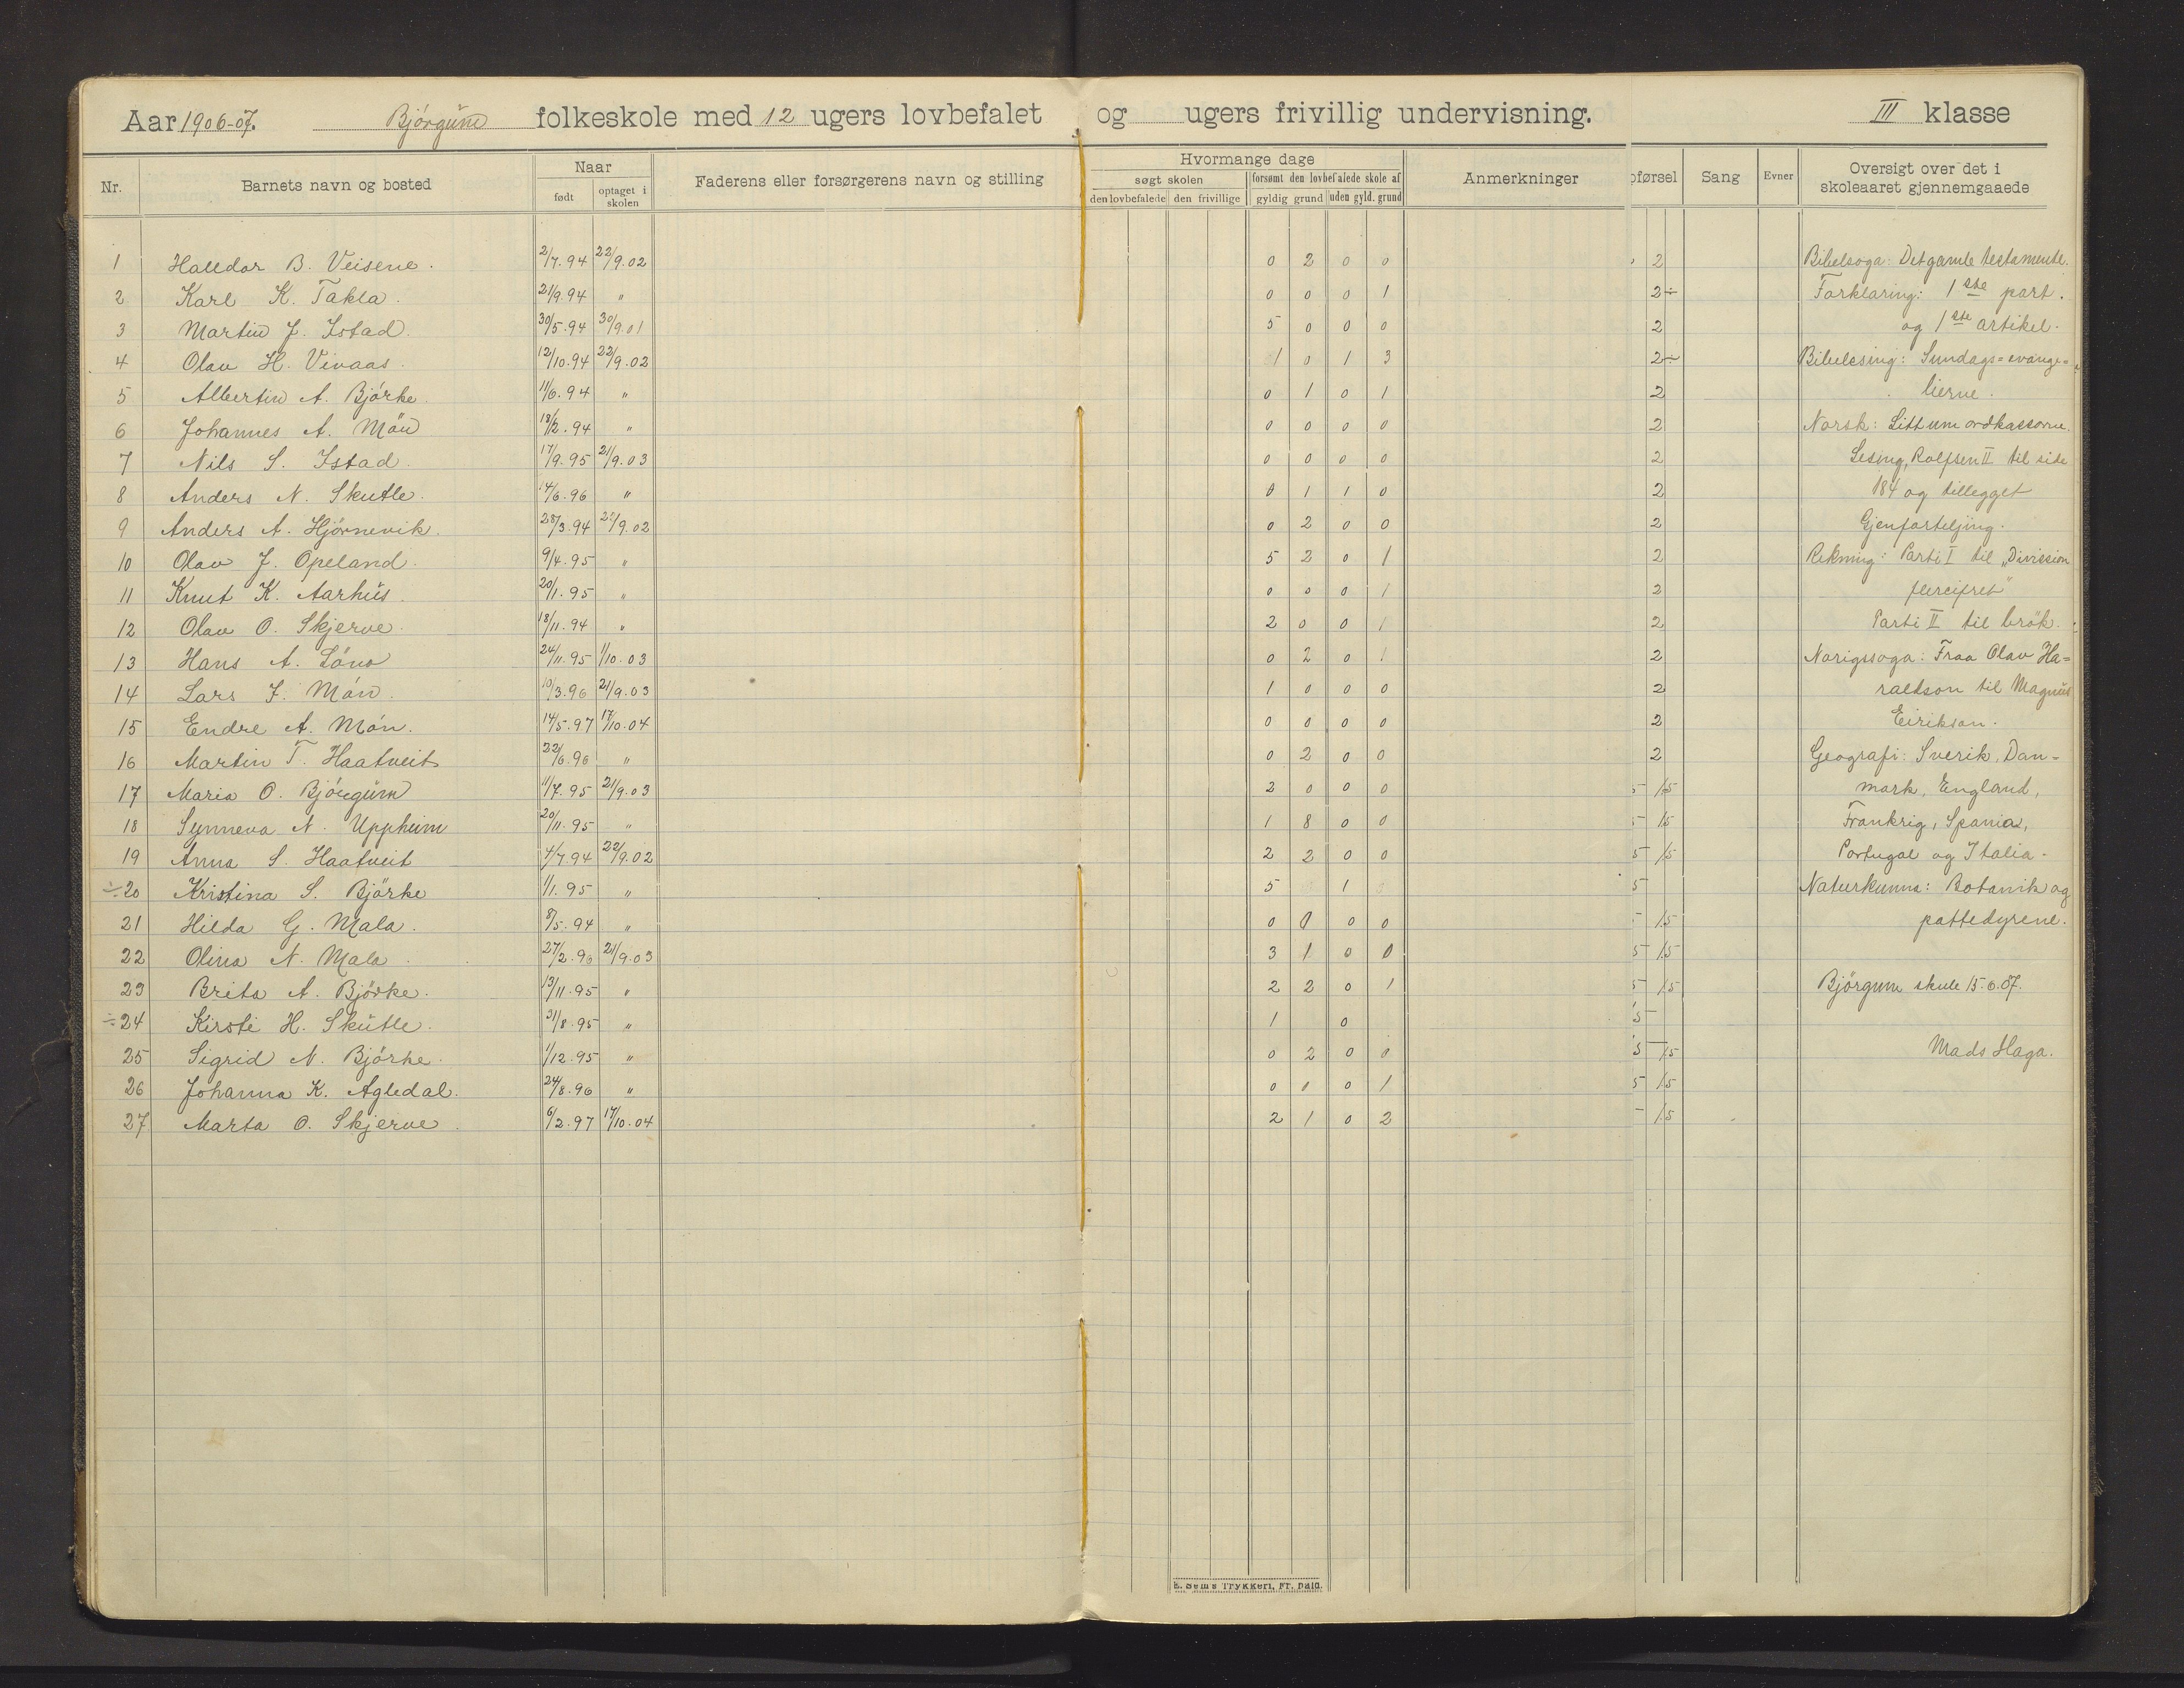 Aar 1906-07. Bjørgum folkeskole med 12 ugers lovbefalet og ugers frivillig undervisning. III klasse
Nr. Barnets navn og bosted Naar født optaget i skolen Faderens eller forsørgerens navn og stilling Hvormange dage søgt skolen den lovbefalede den frivillige forsømt den lovbefalede skole af gyldig grund uden gyld. grund Anmerkninger oførsel Sang Evner Oversigt over det i skoleaaret gjennemgaaede
1 Halldor B. Veisene. 2/7.94 22/9.02 0 2 0 0 2 Bibelsoga: Det gamle testamente.
2 Karl K. Takla. 21/9.94 " 0 0 0 1 2÷ Forklaring: 1ste part.
3 Martin J. Istad. 30/5.94 30/9.01 5 0 0 0 2 og 1ste artikel.
4 Olav H. Vinaas. 12/10.94 22/9.02 1 0 1 3 2÷ Bibellesing: Sundags=evange=
5 Albertin A. Bjørke. 11/6.94 " 0 1 0 1 2 lierne.
6 Johannes A. Mön 18/2.94 " 0 0 0 0 2 Norsk: Litt um ordklassorne.
7 Nils S. Istad. 17/9.95 21/9.03 0 0 0 0 2 Lesing, Rolfsen II til side
8 Anders N. Skutle. 14/6.96 " 0 1 1 0 2 184 og tillegget
9 Anders A. Hjørnevik. 28/3.94 22/9.02 0 2 0 0 2 Gjenforteljing.
10 Olav J. Opeland. 9/4.95 " 5 2 0 1 2 Rekning: Parti I til "Division
11 Knut K. Aarhus. 20/1.95 " 0 0 0 1 2 fleircifret"
12 Olav O. Skjerve. 18/11.94 " 2 0 0 1 2 Parti II til brøk.
13 Hans A. Løno 24/11.95 1/10.03 0 2 0 1 2 Norigssoga: Fraa Olav Ha=
14 Lars J. Møn. 10/3.96 21/9.03 1 0 0 0 2 raldson til Magnus
15 Endre A. Møn. 14/5.97 17/10.04 0 0 0 0 2 Eirikson.
16 Martin T. Haatveit 22/6.96 " 0 2 0 0 2 Geografi: Sverik, Dan=
17 Maria O. Bjørgum 11/7.95 21/9.03 2 0 0 0 5 1.5 mark, England,
18 Synneva N. Uppheim 20/11.95 " 1 8 0 0 5 1.5 Frankrig, Spania,
19 Anna S. Haatveit 4/7.94 22/9.02 2 2 0 0 5 1.5 Portugal og Italia.
÷20 Kristina S. Bjørke 1/1.95 " 5 1 5 Naturkunna: Botanik og
21 Hilda G. Mala. 8/5.94 " 0 0 0 0 1.5 pattedyrene.
22 Olina N. Mala. 27/2.96 21/9.03 3 1 0 0 5 1.5
23 Brita A. Bjørke. 13/11.95 " 2 2 0 1 5 1.5 Bjørgum skule 15.6.07.
÷24 Kirsti H. Skutle. 31/8.95 " 1 0 5
25 Sigrid N. Bjørke. 1/12.95 " 0 2 0 0 5 1.5 Mads Haga.
26 Johanna K. Agledal. 24/8.96 " 0 1 0 1 5 1.5
27 Marta O. Skjerve. 6/2.97 17/10.04 2 1 0 2 1.5
E. Sem's Trykkeri, Fr. hald.